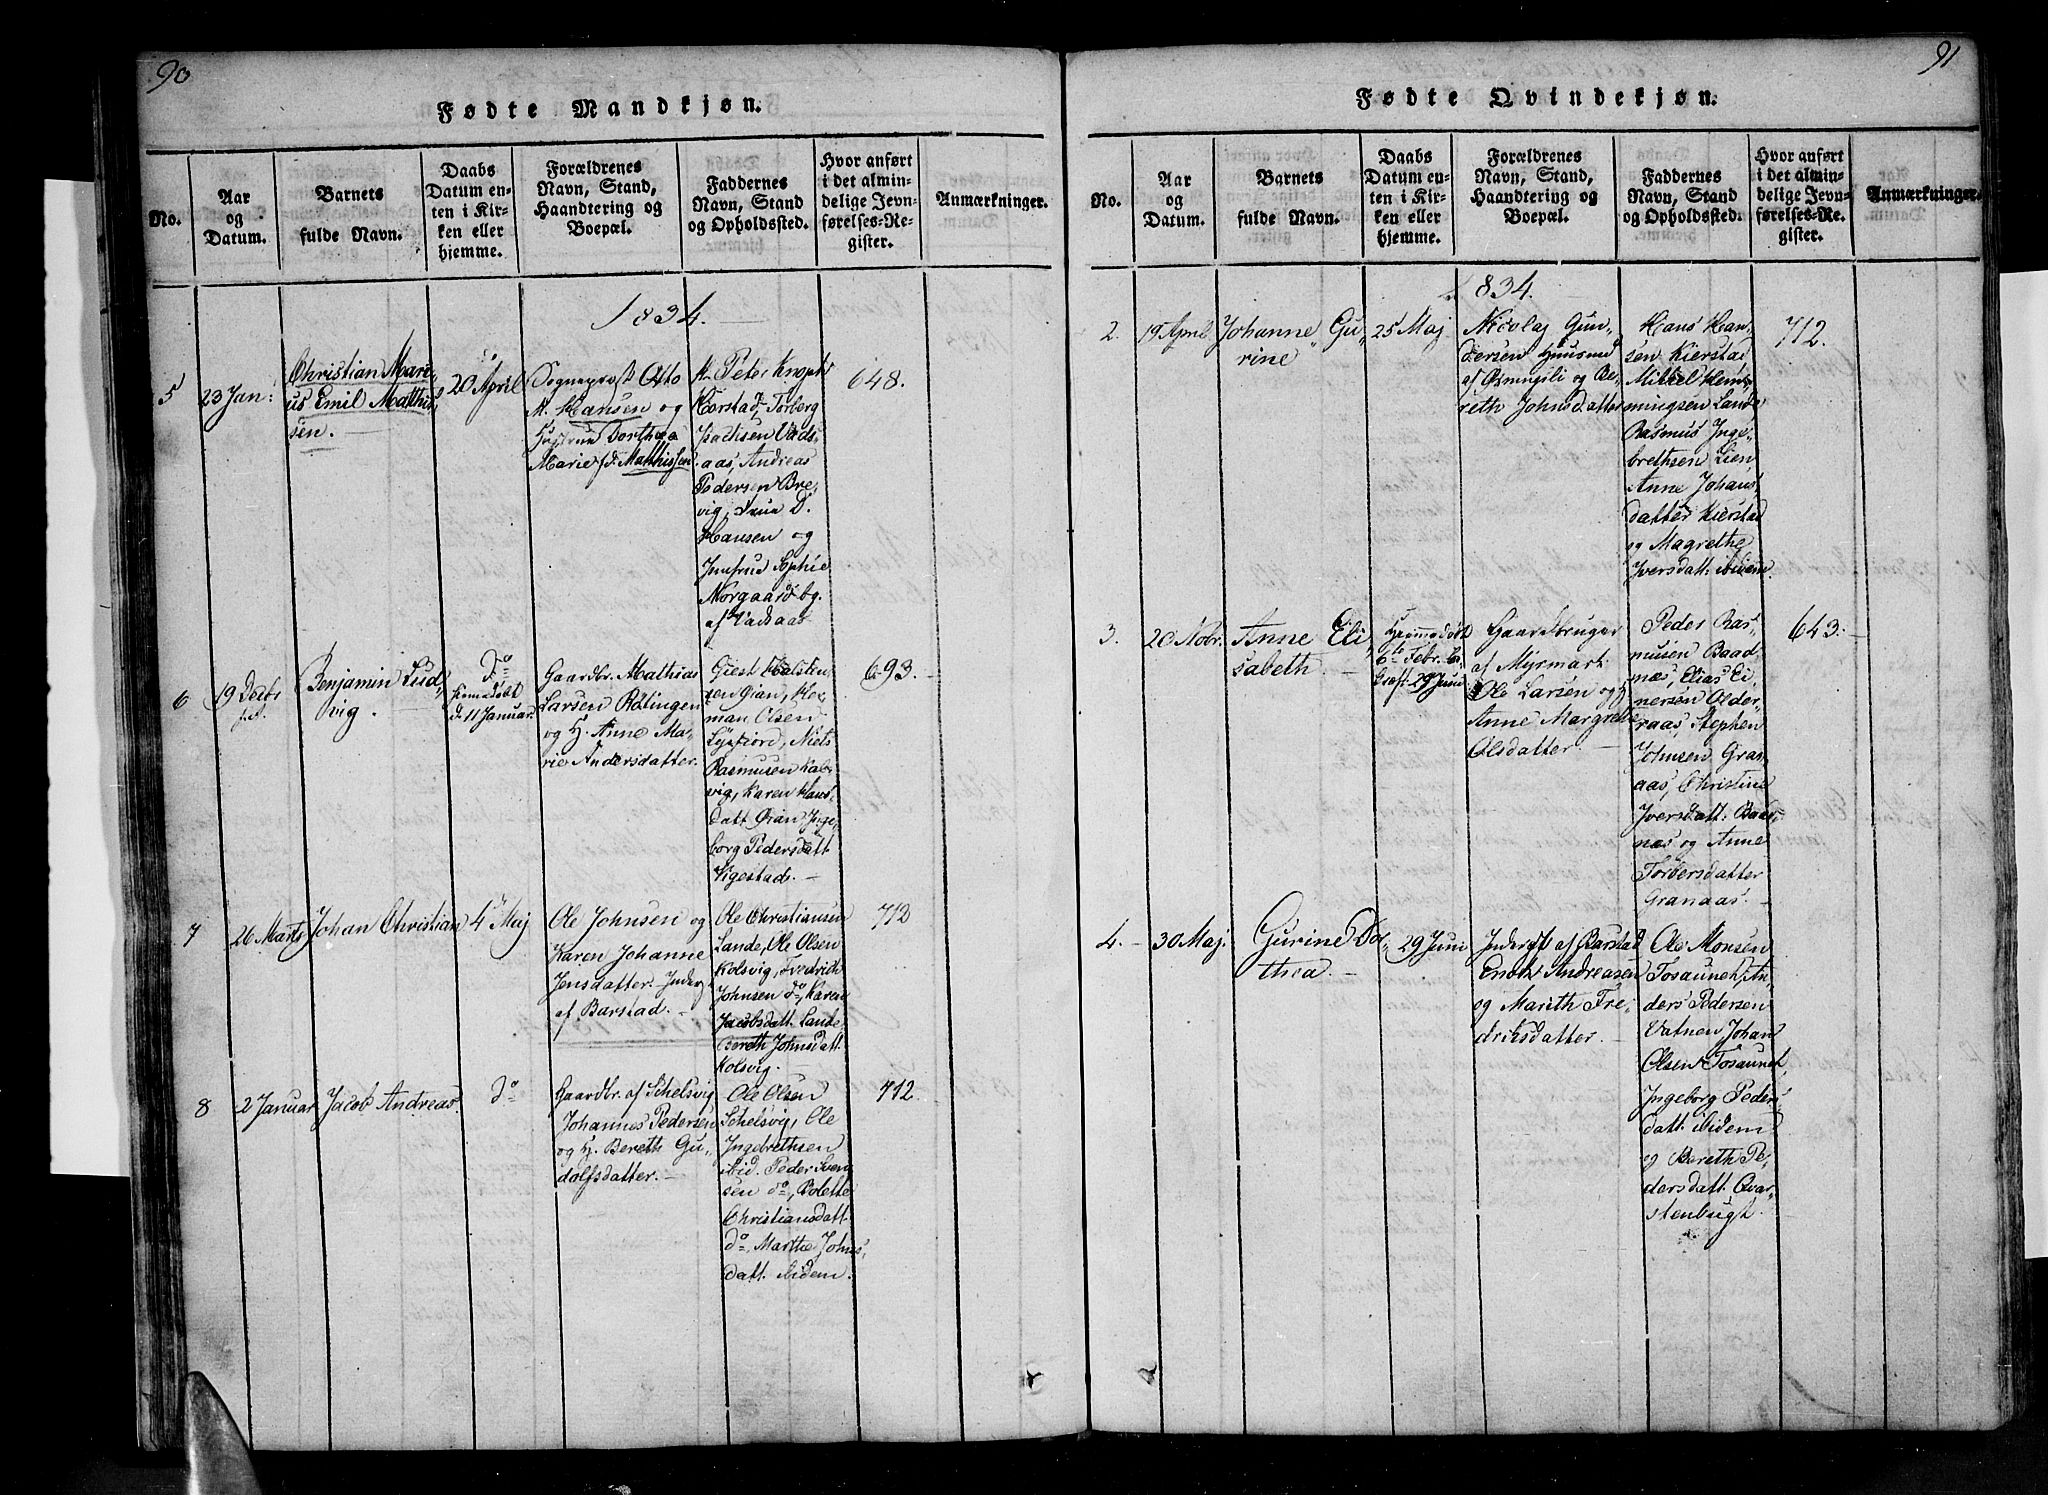 90
Fødte Mandkjøn.
No.
Aar
og
Datum.
Barnets
fulde Navn.
Daabs
Datum en-
ten i Kir-
ken eller
hjemme.
Forældrenes
Navn, Stand,
Haandtering og
Boepæl.
Faddernes
Navn, Stand
og Opholdssted.
Hvor anført
i det almin-
delige Jevn-
førelses-Re-
gister.
Anmærkninger.
1834.
5
23 Jan:
Christian Mari-
us Emil Matthis-
sen.
20 April
Sogneprost Otto
M. Hansen og
Hustrue Dorthea
Marie f. Matthissen
Hr. Peter Knoph
Horstad, Torberg
Isachsen Vads-
aas, Andreas
Pedersen Bre-
vig, Frue D.
Hansen og
Jomfrue Sophie
Norgaard bg.
af Vadsaas
648.
6
19 Decbr
Benjamin Lud-
vig.
do
hjemedøbt
d. 11 Januar
Gaardbr. Mathias
Larsen Røtingen
og H. Anne Ma-
rie Andersdatter.
Giest Holsten-
sen Øian, Her-
man Olsen
Lysfiord, Niels
Rasmusen Kals-
vig, Karen Hans-
datt Øian, Inge-
borg Pedersdatt
Vigestad.
693.
7
26 Marts
Johan Christian
4 Maj
Ole Johnsen og
Karen Johanne
Jensdatter. Inderst
af Barstad.
Ole Christiansen
Lande, Ole Olsen
Kolsvig, Fredrich
Johnsen do, Karen
Jacobsdatt. Lande
Bereth Johnsdatt.
Kolsvig.
712
8
2 Januar
Jacob Andreas.
do
Gaardbr. af Schelsvig
Johannes Pedersen
og H. Bereth Gu-
dolfsdatter.
Ole Olsen
Schelsvig, Ole
Ingebrethsen
ibid. Peder Sven-
sen do, Bolette
Christiansdatt.
do, Marthe Johns-
datt. ibidem.
712.
91
Fødte Qvindekjøn.
No.
Aar
og
Datum.
Barnets
fulde Navn.
Daabs
Datum en-
ten i Kir-
ken eller
hjemme.
Forældrenes
Navn, Stand,
Haandtering og
Boepæl.
Faddernes
Navn, Stand
og Opholdssted.
Hvor anført
i det almin-
delige Jevn-
førelses-Re-
gister.
Anmærkninger.
1834.
2.
19 April
Johanne Gu-
rine
25 Maj
Nicolaj Gun-
dersen Huusmd
af Osmugsli og Be-
reth Johnsdatter
Hans Han-
sen Kierstad
Mikkel Hem-
mingsen Lande
Rasmus Inge-
brethsen Lien,
Anne Johans-
datter Kierstad
og Magrethe
Iversdatt: ibidem.
712.
3.
20 Nobr.
Anne Eli-
sabeth.
Hjemmedøbt
6te Febr.
29 Juni
Gaardbruger
af Myrmark
Ole Larsen og H.
Anne Margrethe
Olsdatter
Peder Ras-
musen Baad-
næs, Elias Ei-
nersen Older-
raas, Stephen
Johnsen Gran-
aas, Christine
Iversdatt: Baad-
næs og Anne
Torbersdatter
Granaas.
643.
4.
30 Maj.
Gurine Do-
thea.
29 Juni
Inderst af Barstad
Enok Andreasen
og Marith Fre-
driksdatter.
Ole Monsen
Tosaunet, An-
ders Pedersen
Vatnen Johan
Olsen Tosaunet,
Ingeborg Peders-
datt. ibidem
og Bereth Pe-
dersdatt. Qvar-
stenbugt.